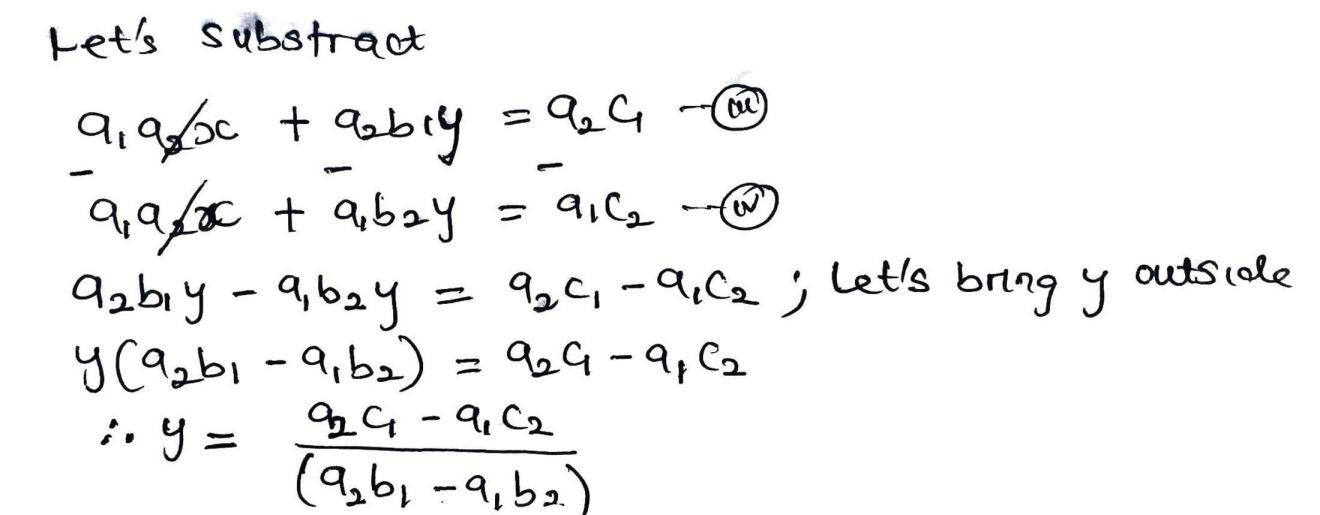 Let's substract
a₁a₂x + a₂b₁y = a₂c₁ - (iii)
- - -
a₁a₂x + a₁b₂y = a₁c₂ - (iv)
a₂b₁y - a₁b₂y = a₂c₁ - a₁c₂ ; Let's bring y outside
y(a₂b₁ - a₁b₂) = a₂c₁ - a₁c₂
∴ y = a₂c₁ - a₁c₂
(a₂b₁ - a₁b₂)